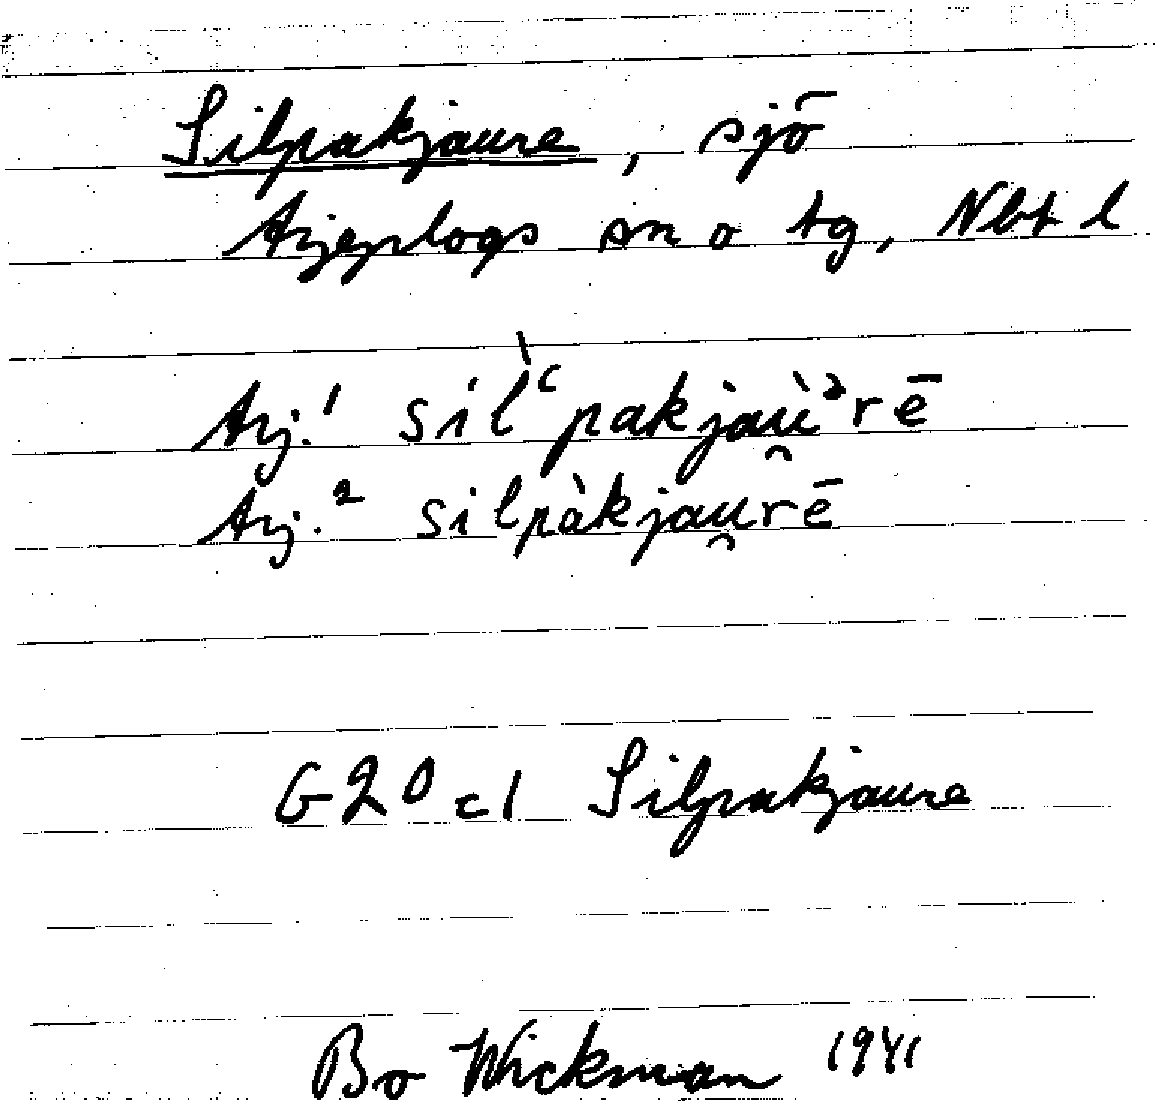 Silpakjaure, sjö
Arjeplogs sn o tg, Nbt l
Arj.¹ sil̀ʿpakjaù̯ᵊrē
Arj.² silpàkjau̯rē
G20 c1 Silpakjaure
Bo Wickman 1941